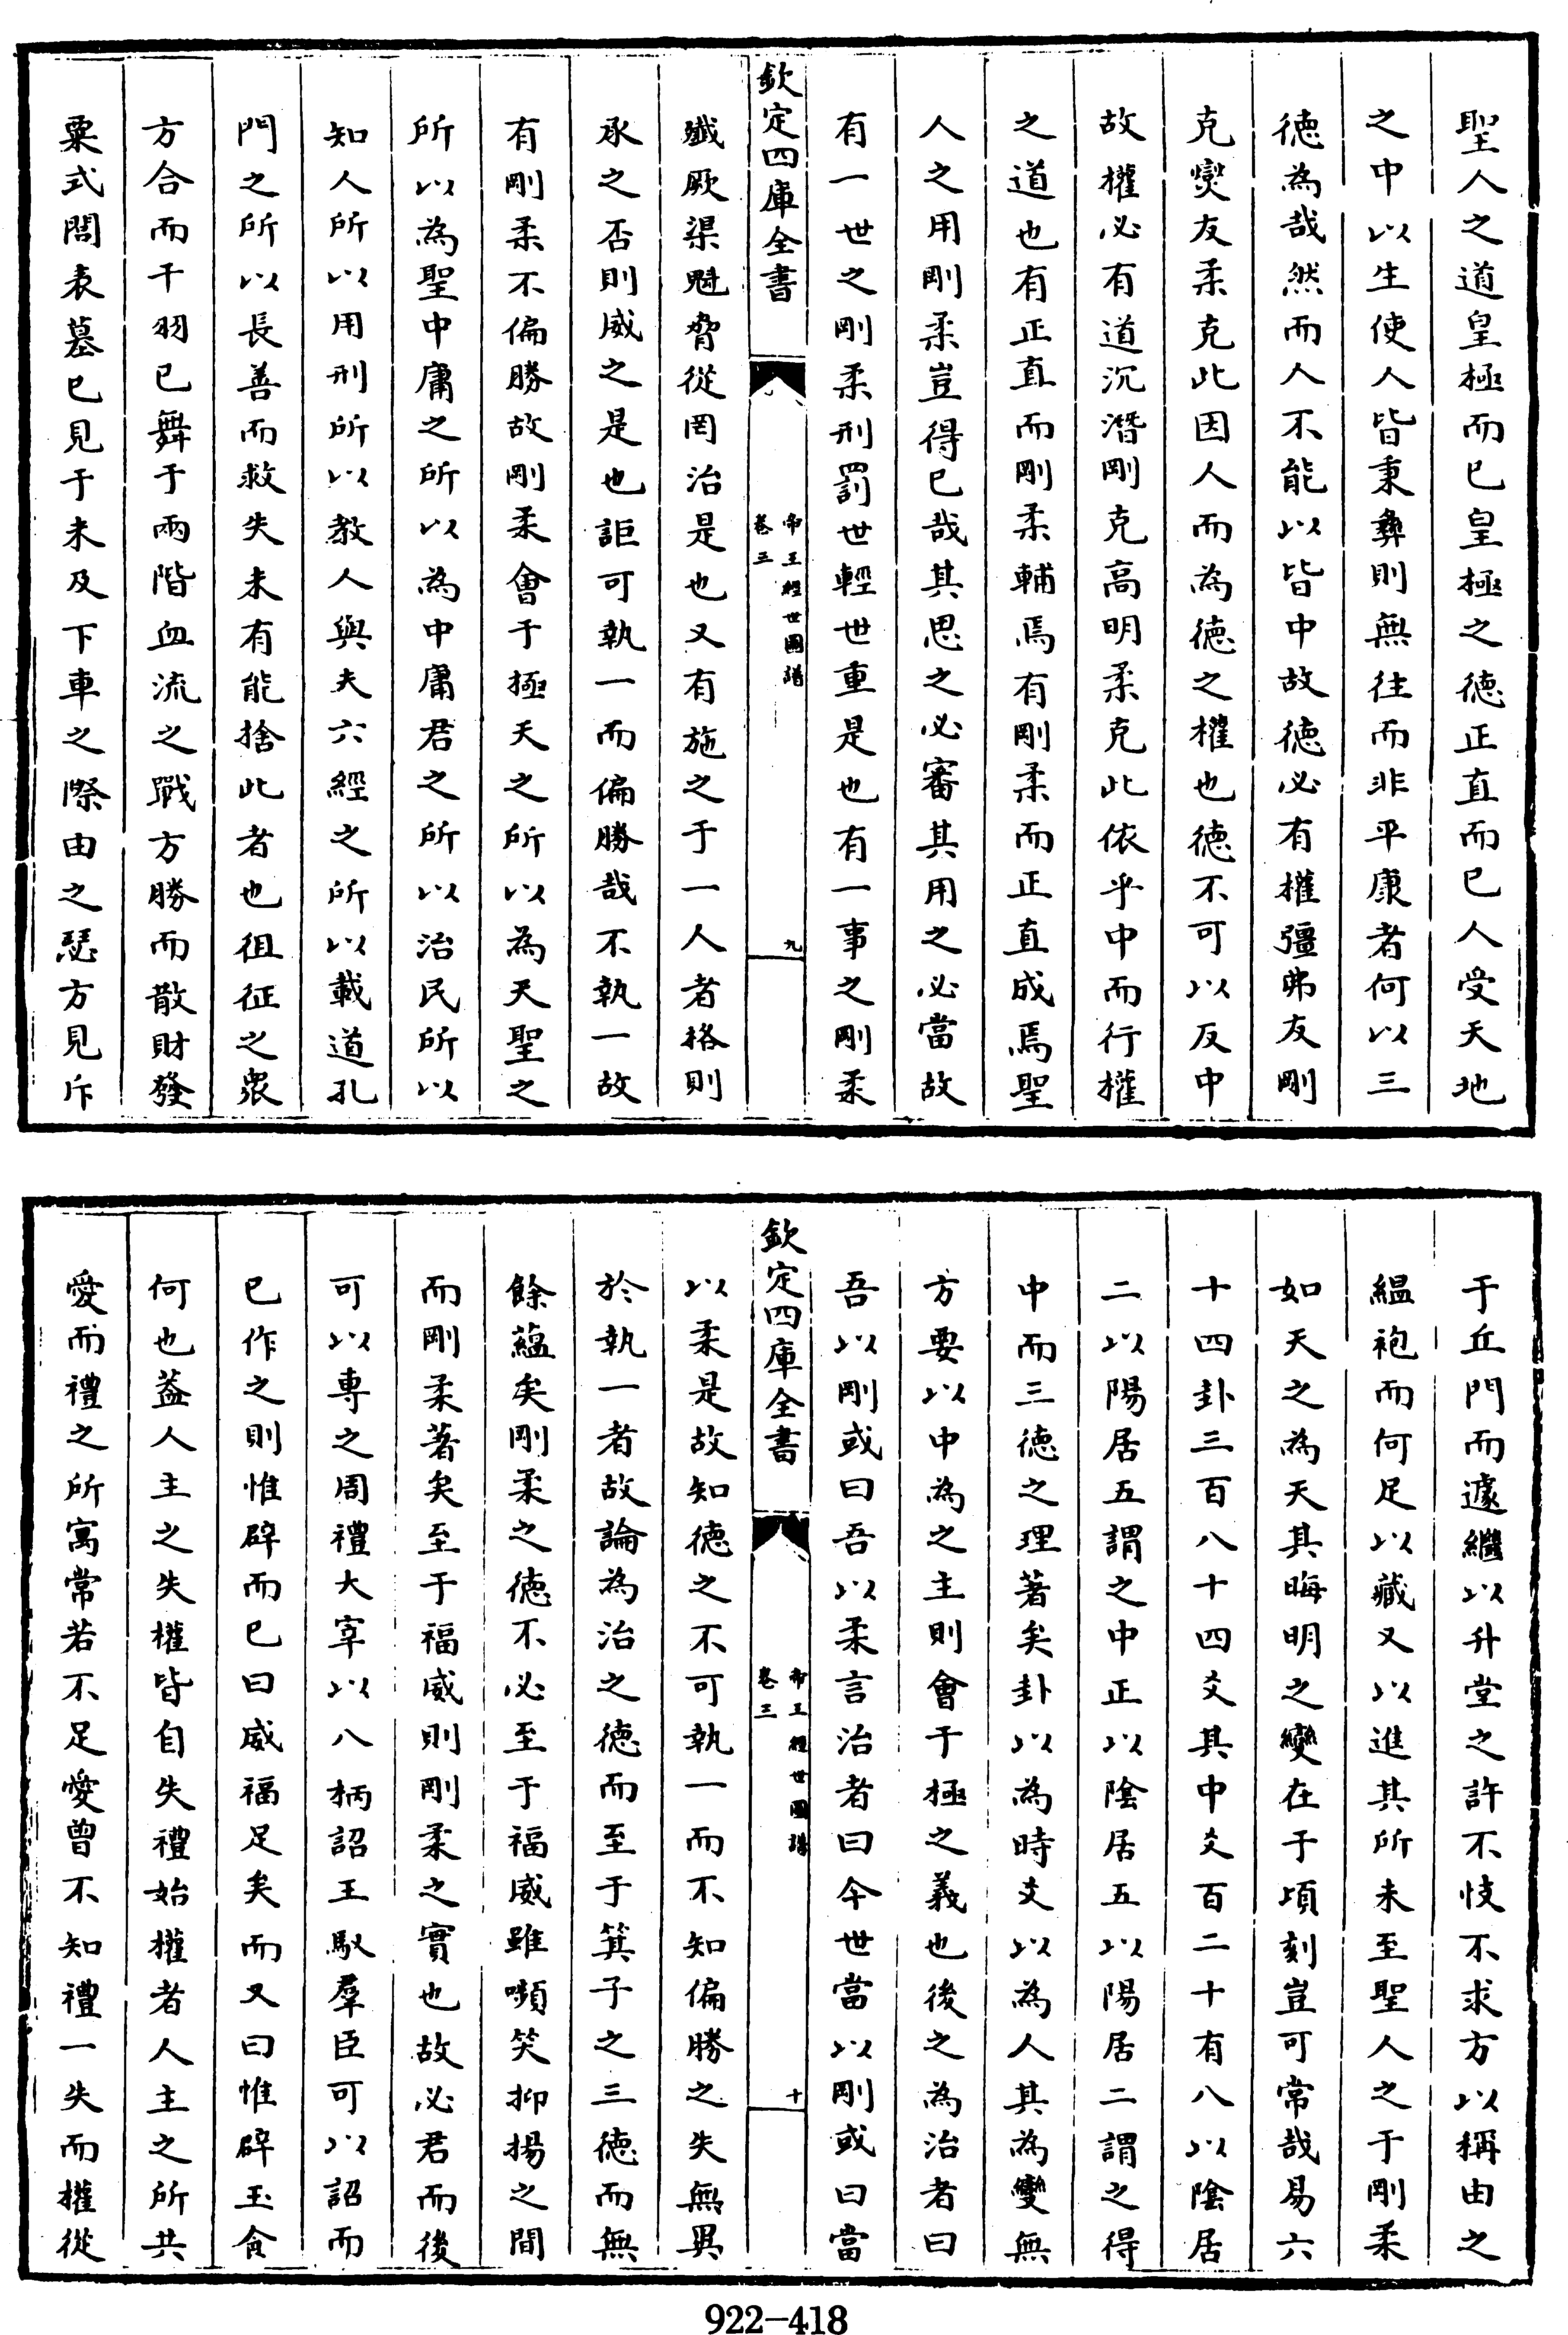 聖人之道皇極而已皇極之德正直而已人受天地
之中以生使人皆秉彝則無往而非平康者何以三
德為哉然而人不能以皆中故德必有權彊弗友剛
克燮友柔克此因人而為德之權也德不可以反中
故權必有道沉潛剛克高明柔克此依乎中而行權
之道也有正直而剛柔輔焉有剛柔而正直成焉聖
人之用剛柔豈得已哉其思之必審其用之必當故
有一世之剛柔刑罰世輕世重是也有一事之剛柔
欽定四庫全書
帝王經世圖譜
卷三
九
殲厥渠魁脅從罔治是也又有施之于一人者格則
承之否則威之是也詎可執一而偏勝哉不執一故
有剛柔不偏勝故剛柔會于極天之所以為天聖之
所以為聖中庸之所以為中庸君之所以治民所以
知人所以用刑所以教人與夫六經之所以載道孔
門之所以長善而救失未有能捨此者也徂征之衆
方合而干羽已舞于兩階血流之戰方勝而散財發
粟式閭表墓已見于未及下車之際由之瑟方見斥
于丘門而遽繼以升堂之許不忮不求方以稱由之
縕袍而何足以藏又以進其所未至聖人之于剛柔
如天之為天其晦明之變在于頃刻豈可常哉易六
十四卦三百八十四爻其中爻百二十有八以陰居
二以陽居五謂之中正以陰居五以陽居二謂之得
中而三德之理著矣卦以為時爻以為人其為變無
方要以中為之主則會于極之義也後之為治者曰
吾以剛或曰吾以柔言治者曰今世當以剛或曰當
欽定四庫全書
帝王經世圖譜
卷三
十
以柔是故知德之不可執一而不知偏勝之失無異
於執一者故論為治之德而至于箕子之三德而無
餘蘊矣剛柔之德不必至于福威雖嚬笑抑揚之間
而剛柔著矣至于福威則剛柔之實也故必君而後
可以專之周禮大宰以八柄詔王馭羣臣可以詔而
已作之則惟辟而已曰威福足矣而又曰惟辟玉食
何也葢人主之失權皆自失禮始權者人主之所共
愛而禮之所寓常若不足愛曾不知禮一失而權從
922-418